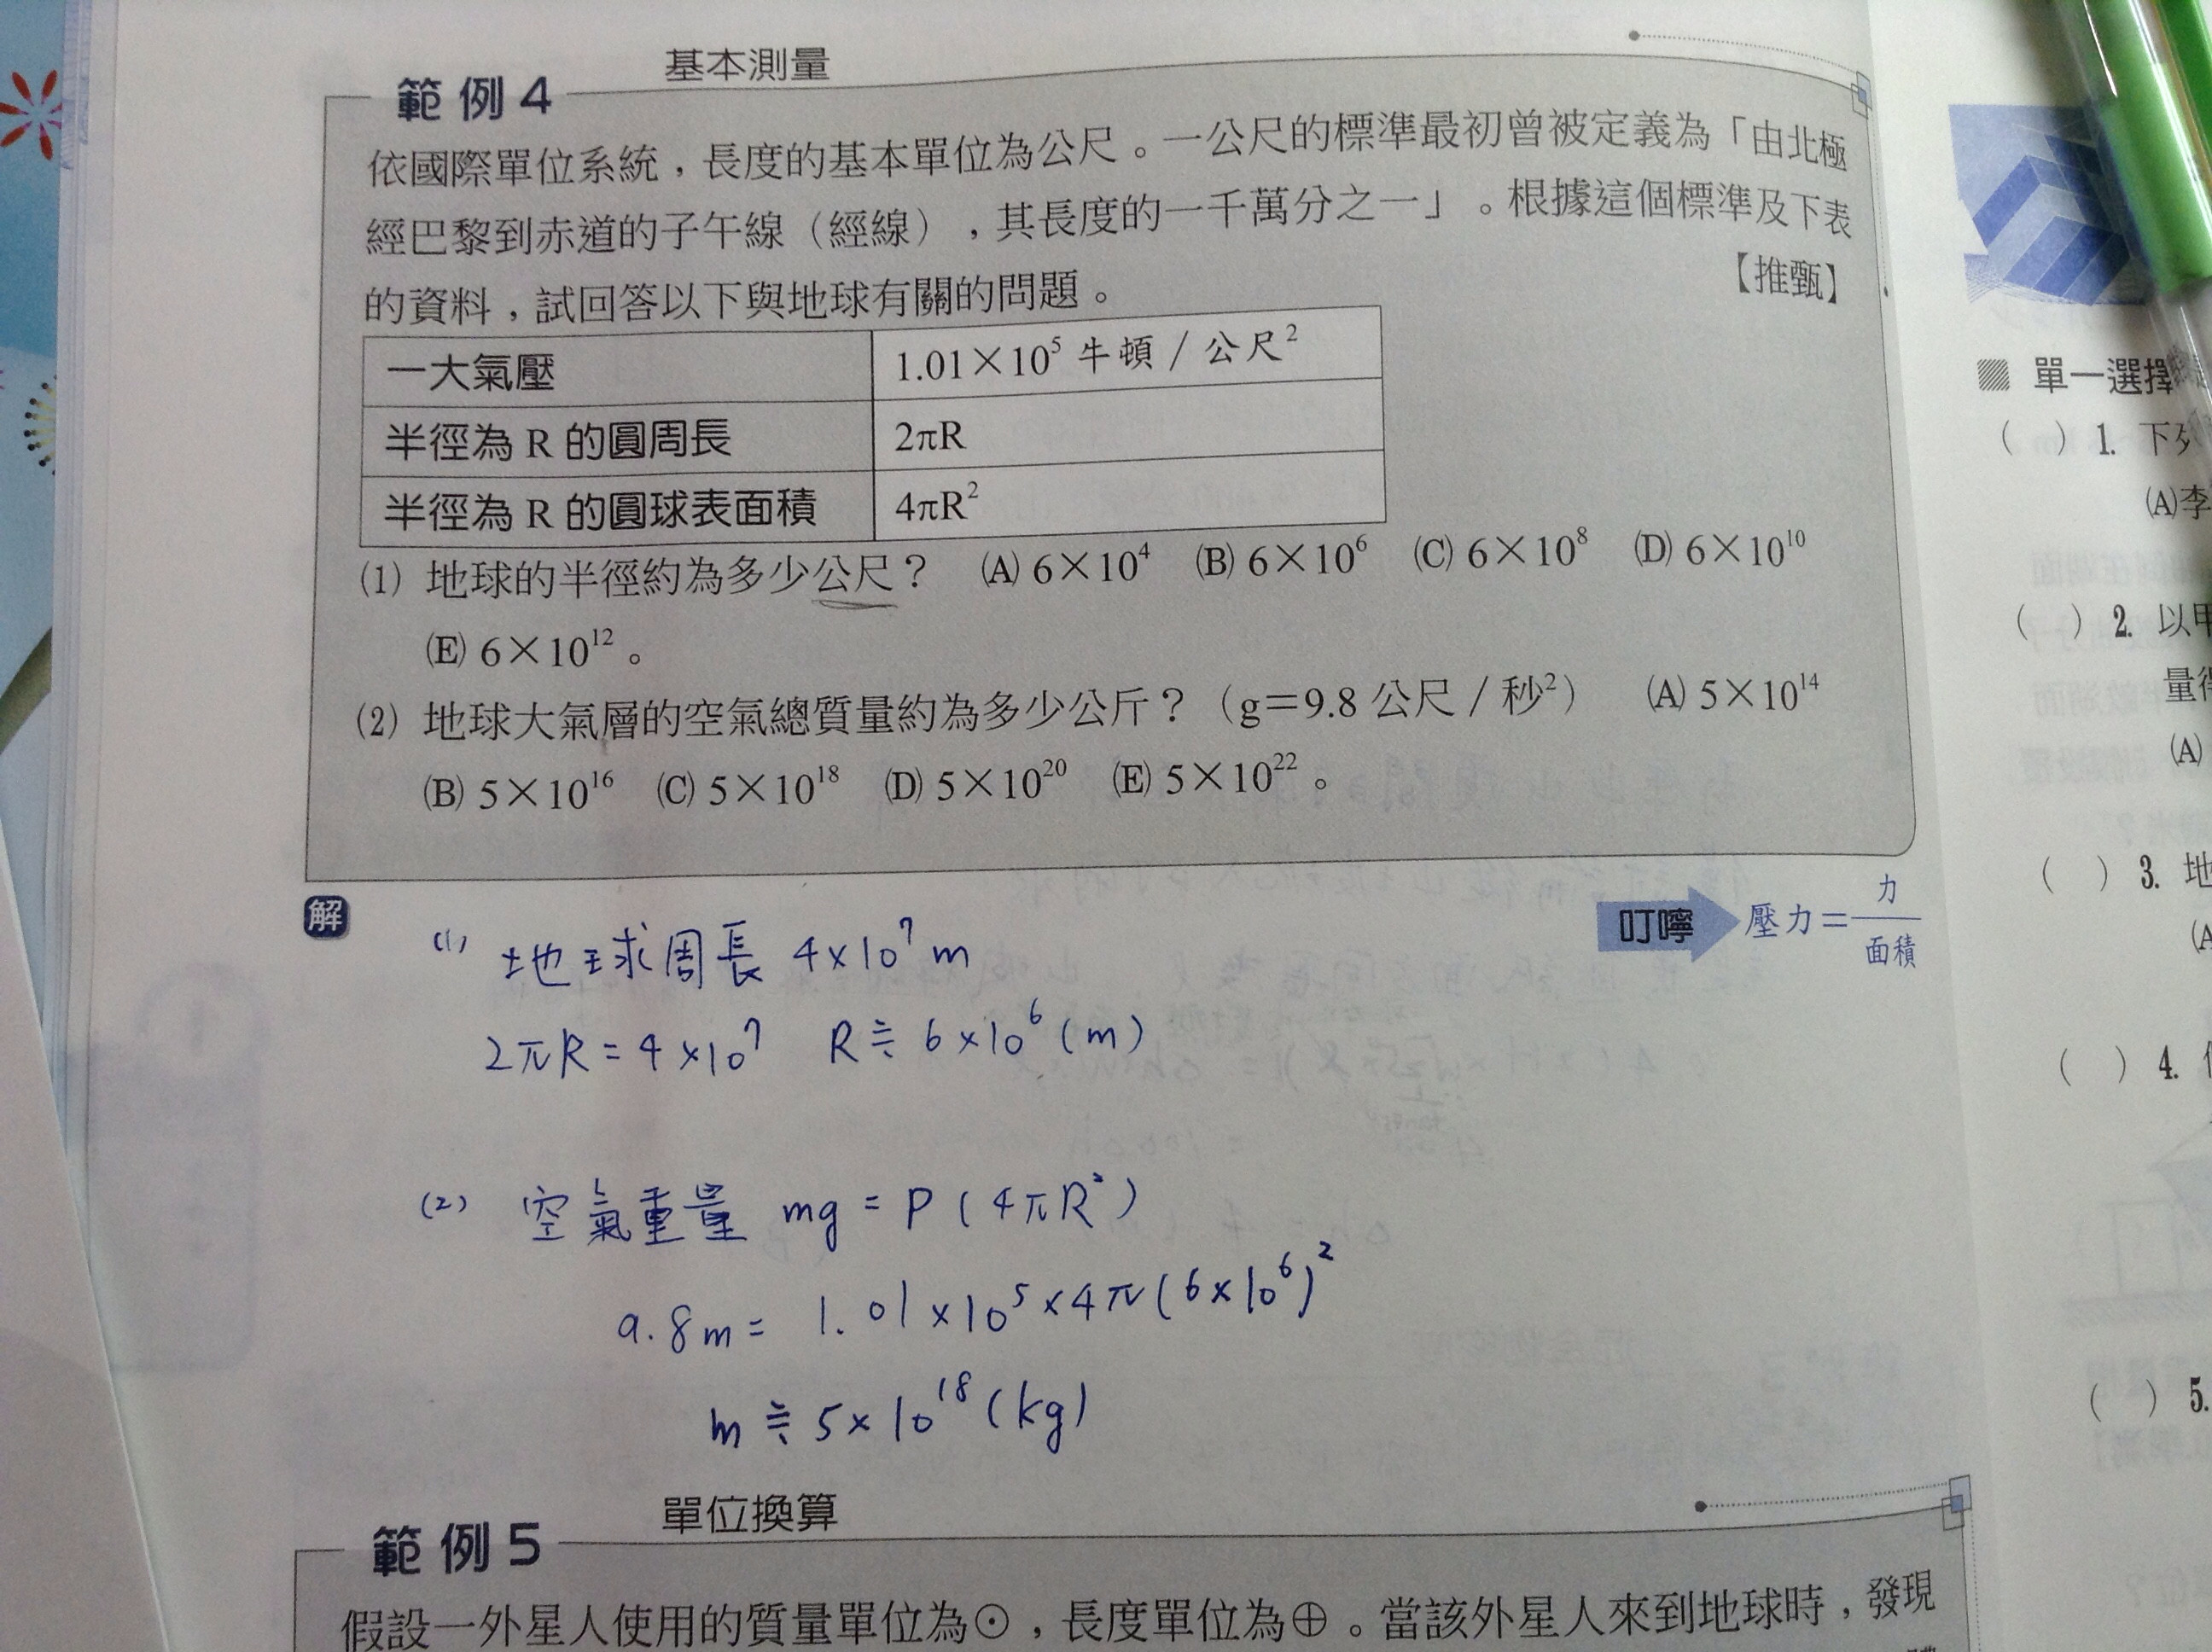 基本測量
範例4
依國際單位系統，長度的基本單位為公尺。一公尺的標準最初曾被定義為「由北極
經巴黎到赤道的子午線（經線），其長度的一千萬分之一」。根據這個標準及下表
的資料，試回答以下與地球有關的問題。
【推甄】
一大氣壓 1.01×10⁵ 牛頓／公尺²
半徑為 R 的圓周長 2πR
半徑為 R 的圓球表面積 4πR²
(1) 地球的半徑約為多少公尺？ (A) 6×10⁴ (B) 6×10⁶ (C) 6×10⁸ (D) 6×10¹⁰
(E) 6×10¹²。
(2) 地球大氣層的空氣總質量約為多少公斤？（g＝9.8 公尺／秒²） (A) 5×10¹⁴
(B) 5×10¹⁶ (C) 5×10¹⁸ (D) 5×10²⁰ (E) 5×10²²。
解
叮嚀 壓力＝力/面積
(1) 地球周長 4×10⁷ m
2πR = 4×10⁷ R≒6×10⁶ (m)
(2) 空氣重量 mg = P (4πR²)
9.8m = 1.01×10⁵×4π(6×10⁶)²
m≒5×10¹⁸ (kg)
單位換算
範例5
假設一外星人使用的質量單位為⊙，長度單位為⊕。當該外星人來到地球時，發現
單一選擇
( ) 1. 下列
(A)李
( ) 2. 以甲
量
(A)
( ) 3. 地
(A
( ) 4.
( ) 5.